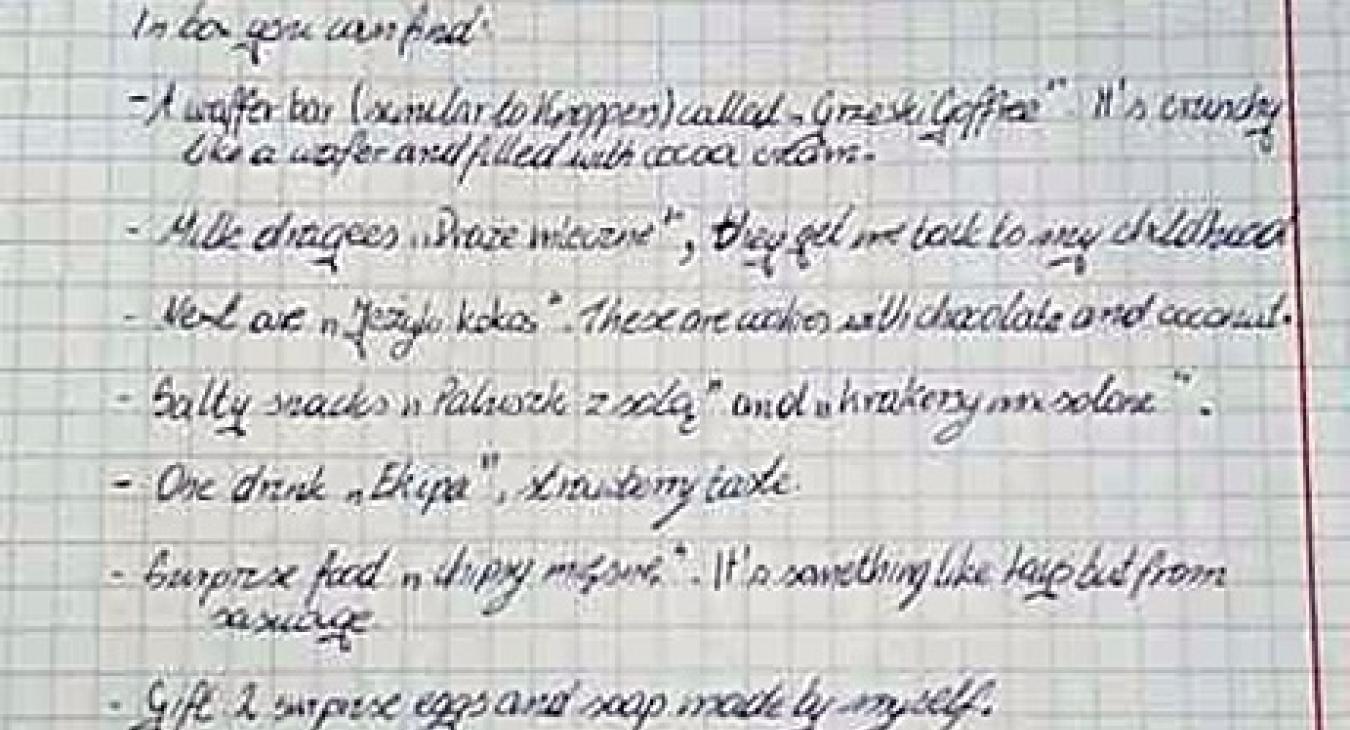 In box you can find:
- A waffer bar (similar to Knoppers) called „Grześki Goffree". It's crunchy
like a wafer and filled with cocoa cream.
- Milk dragees „Draże mleczne", they get me back to my childhood
- Next are „Jeżyki kokos". These are cookies with chocolate and coconut.
- Salty snacks „Paluszki z solą" and „krakersy solone".
- One drink „Ekipa", strawberry taste.
- Surprise food „chipsy mięsne". It's something like lays but from
sasuage
- Gift 2 surprise eggs and soap made by myself.